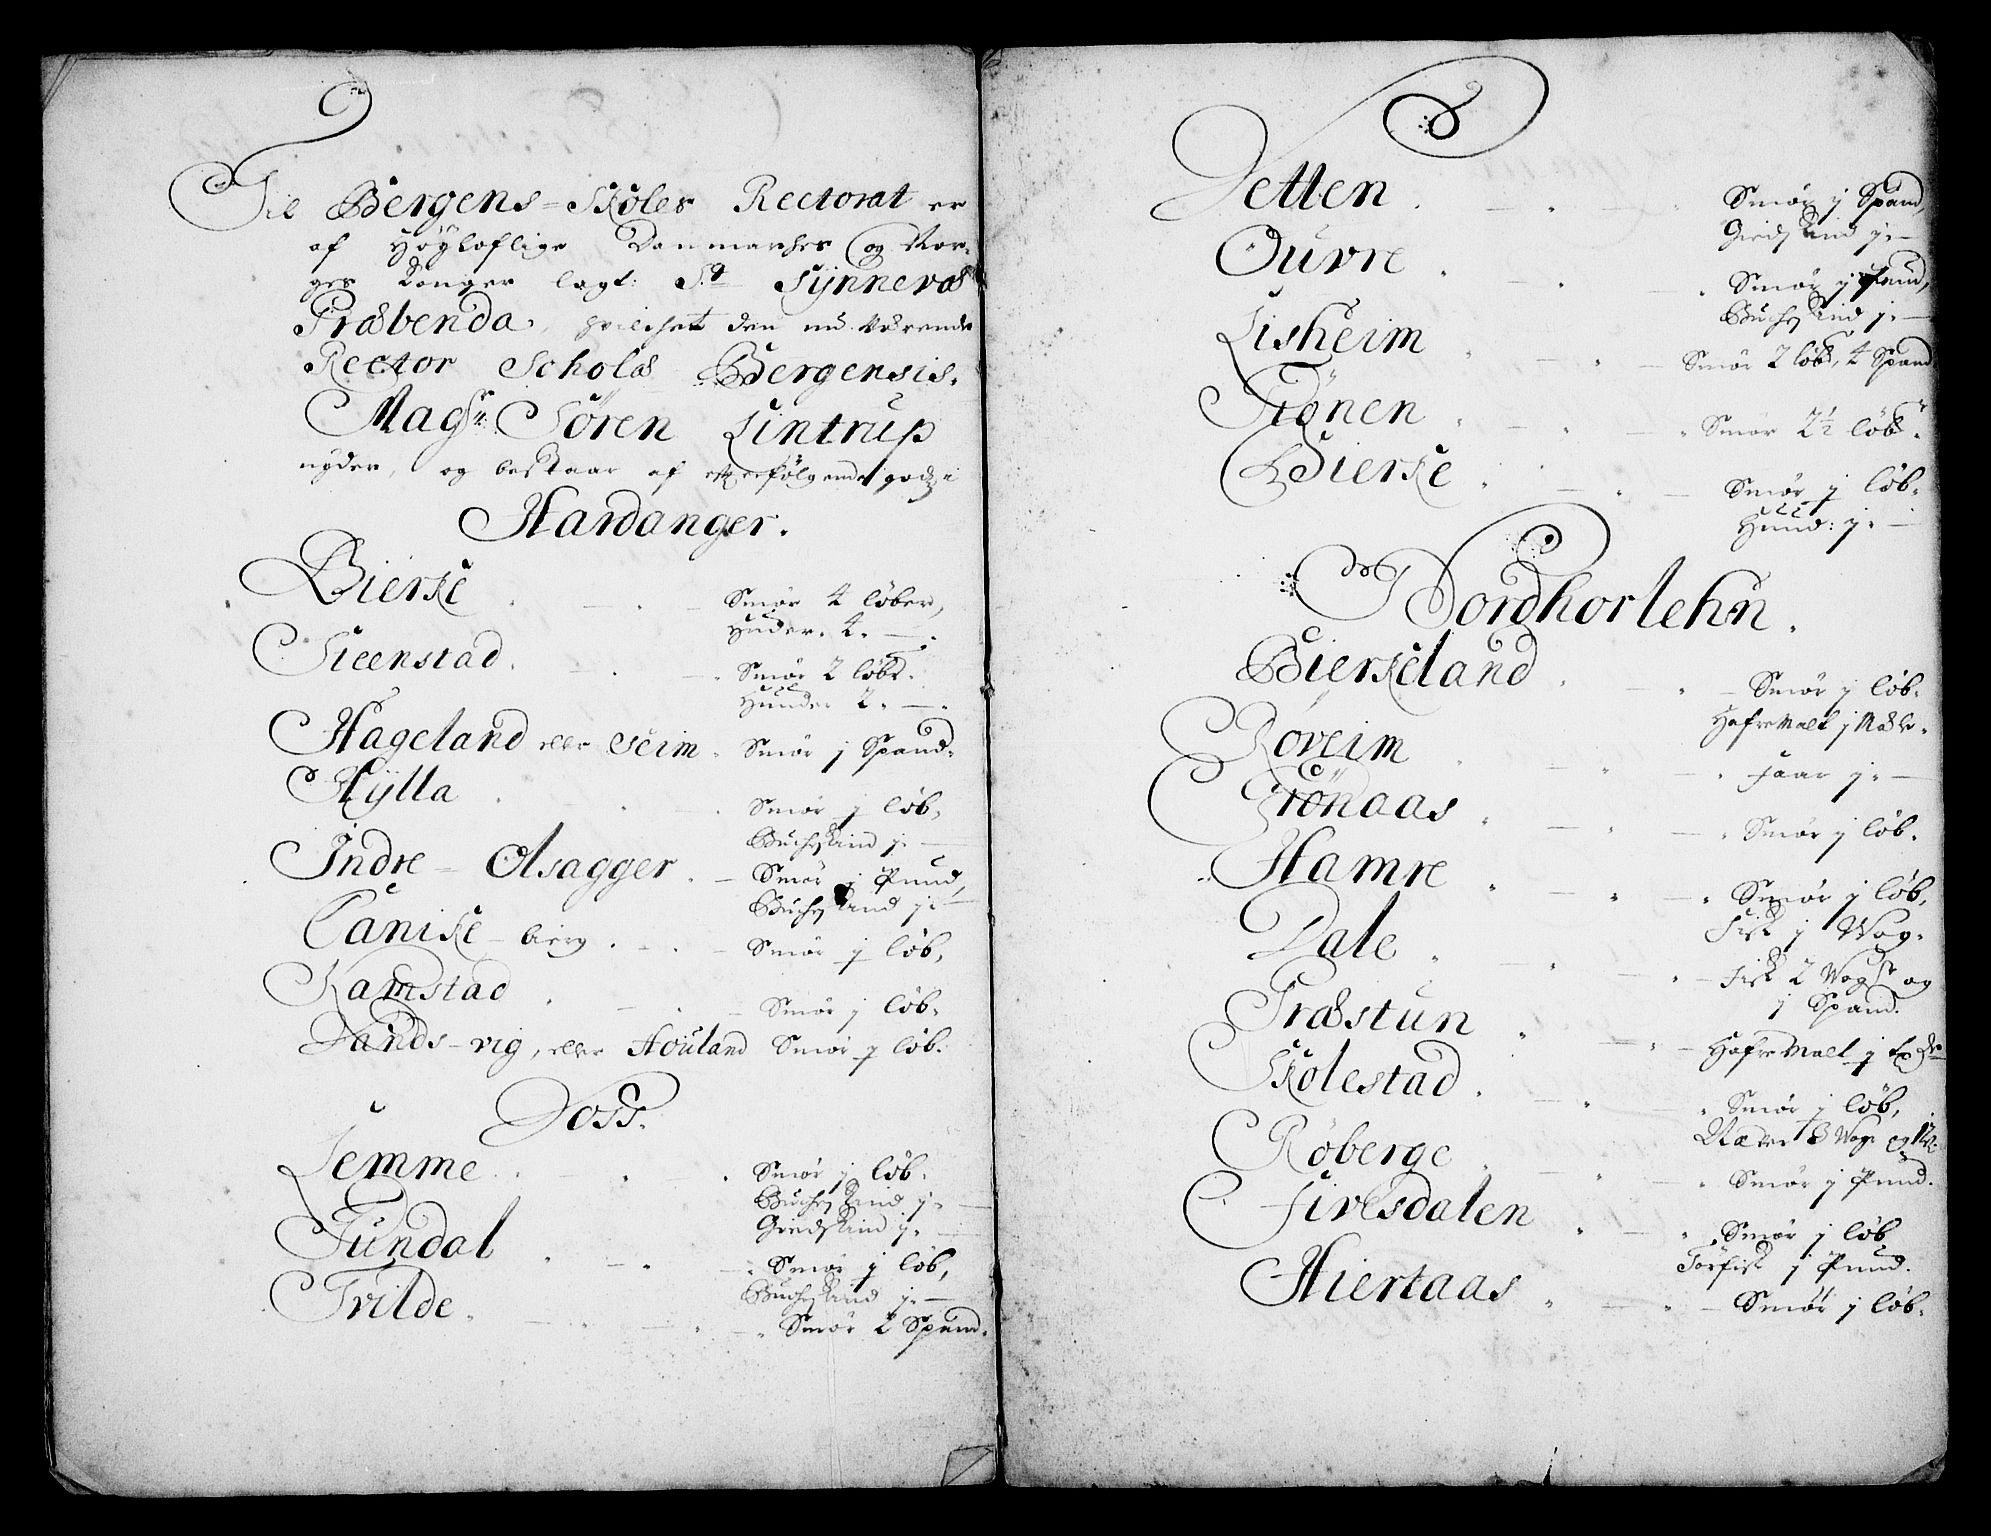 Til Bergens-Skoles Rectorat er
af Höyloflige Danmarches og Nor-
ges Konger lagt: St. Synnevæ
Præbenda, hvilchet den nu værende
Rector Scholæ Bergensis.
Magr. Sören Lintrup
nyder, og bestaar af efterfölgende godz i
Hardanger.
Bierke Smör 4 löber,
Huder. 4.
Steenstad. Smör 2 löbr.
Hunder 2.
Hageland eller Seim Smör j Spand.
Hylla Smör j löb,
Buchskind j.
Indre - Olsagger. Smör j Pund,
Buchskind j.
Canike-bierg. Smör j löb,
Ramstad Smör j löb.
Sands-vig, eller Houland Smör j löb.
Voss.
Lemme Smör j löb.
Buchskind j.
Giedskind j.
Tundal Smör j löb,
Buchskind j.
Tvilde. Smör 2 Spand.
Vetten Smör j Spand,
Giedskind j.
Ouvre Smör j Pund,
Buchskind j.
Lisheim Smör 2 löbr, 4 Spand
Stönen Smör 2½ löbr.
Bierke Smör j löb.
Huud: j.
Nordhorlehn.
Bierkeland Smör j löb.
Hafre Malt j Mæle.
Röveim Faar j.
Trönaas Smör j löb.
Hamre Smör j löb,
Fisk j Wog.
Dale Fisk 2 Wogr og
j Spand.
Træstun Hafre Malt j
Skolestad Smör j löb,
3 Wog og 12
Röberge Smör j Pund.
Sivesdalen Smör j löb
Törfisk j Pund.
Hiertaas Smör j löb.